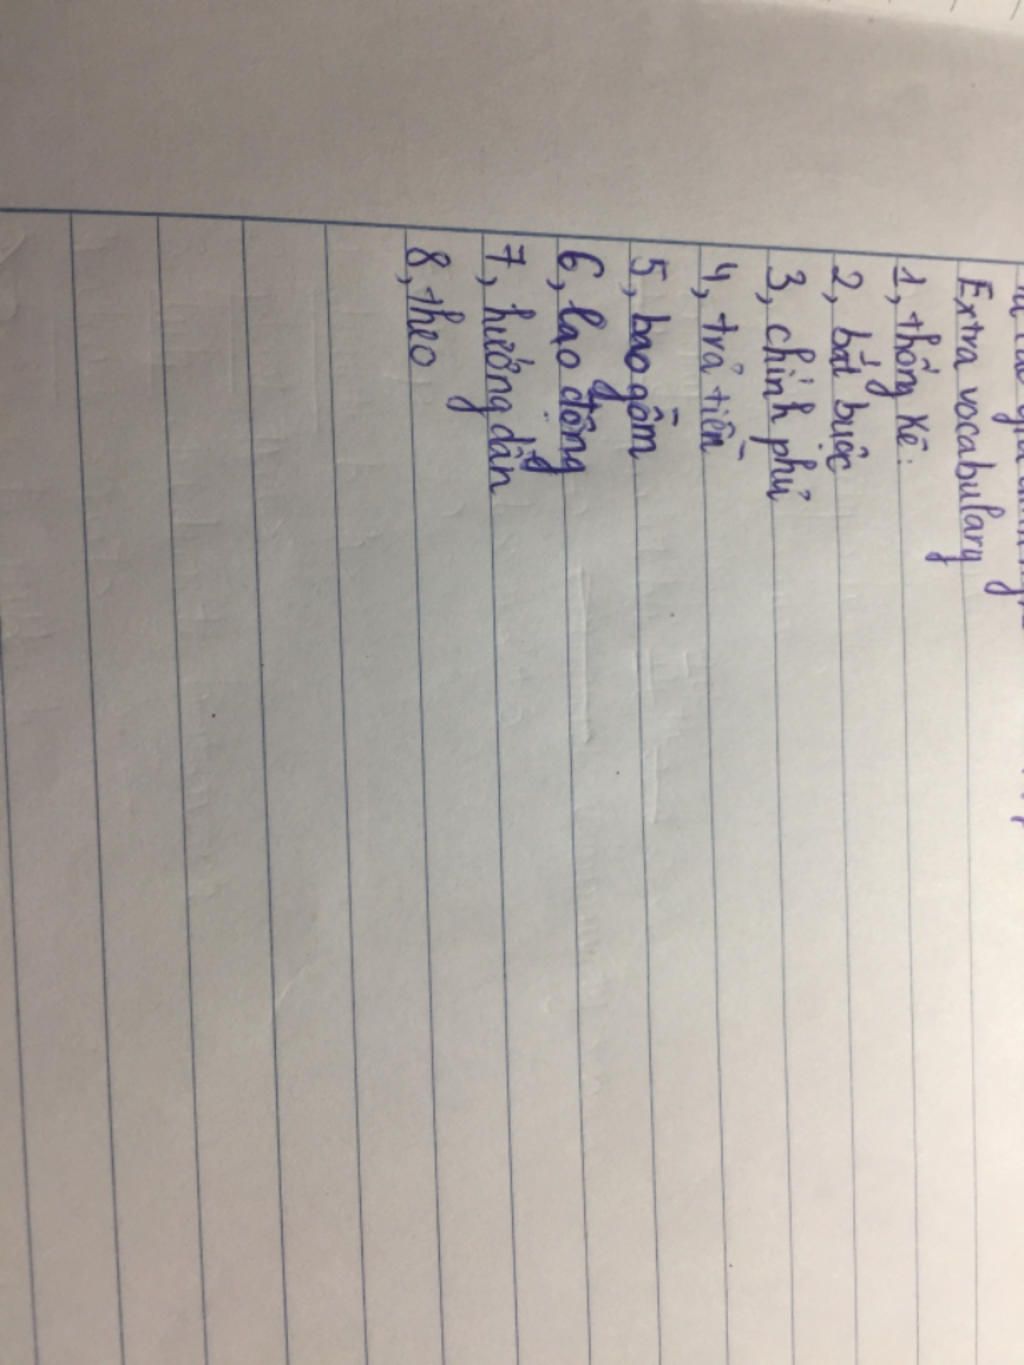 Extra vocabulary
1, thống kê:
2, bắt buộc
3, chính phủ
4, trả tiền
5, bao gồm
6, lao động
7, hướng dẫn
8, theo